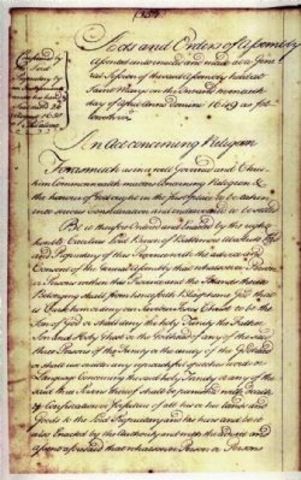 (354)
Acts and Orders of Assembly
Assented unto enacted and made at a Gene
ral Session of the said Assembly held at
Saint Marys on the one and twentieth
day of April Anno Domini 1649 as fol
loweth
Confirmed by
the Lord
Proprietary by
an Instrument
under his hand
& Seal
August 1650
An Act concerning Religion
Forasmuch as in a well Governed and Chris
tian Common wealth matters Concerning Religion &
the honour of God ought in the first place to be taken
into serious Consideration and endeavoured to be settled
Be it therefore Ordered and Enacted by the right
honble Cecilius Lord Baron of Baltemore absolute Lord
and Proprietary of this Province with the advice and
Consent of this General Assembly that whatsoever Person
or Persons within this Province and the Islands thereto
Belonging shall from henceforth Blaspheme God that
is Curse him or deny our Saviour Jesus Christ to be the
Son of God or shall deny the holy Trinity the Father
Son and Holy Ghost or the Godhead of any of the said
three Persons of the Trinity or the unity of the Godhead
or shall use or utter any reproachful Speeches word or
Language Concerning the said holy Trinity or any of the
said three Persons thereof shall be punished with Death
& Confiscation or Forfeiture of all his or her Lands and
Goods to the Lord Proprietary and his heirs and be it
also Enacted by the Authority and with the advice and
assent aforesaid that whatsoever Person or Persons